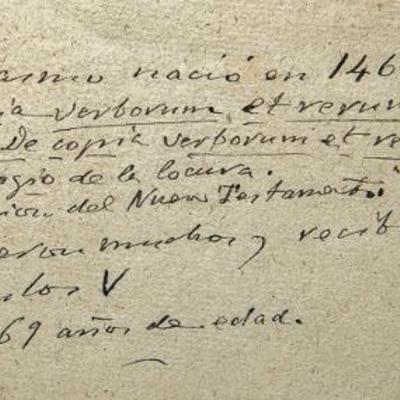 asmo nació en 146
ia verborum et rerum
De copia verborum et re
ogio de la locura.
sion del Nuevo Testamento.
eron muchos y recib
rlos V
69 años de edad.